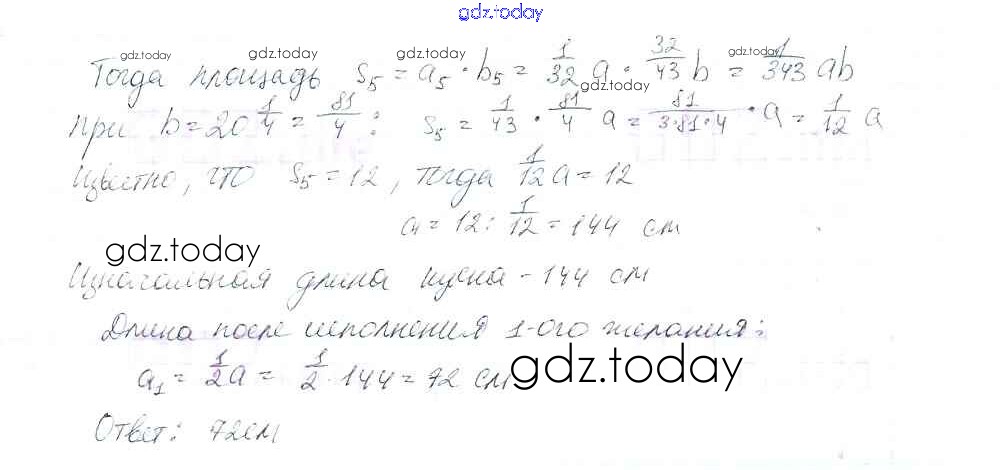 gdz.today
gdz.today gdz.today gdz.today gdz.today gdz.today
Тогда площадь S₅ = a₅ · b₅ = 1/32 a · 32/43 b = 1/343 ab
При b = 20 1/4 = 81/4 : S₅ = 1/43 · 81/4 a = 81/3·81·4 · a = 1/12 a
Известно, что S₅ = 12, тогда 1/12 a = 12
a = 12 : 1/12 = 144 см
gdz.today
Изначальная длина куска - 144 см
Длина после исполнения 1-ого желания:
a₁ = 1/2 a = 1/2 · 144 = 72 см
gdz.today
Ответ: 72см